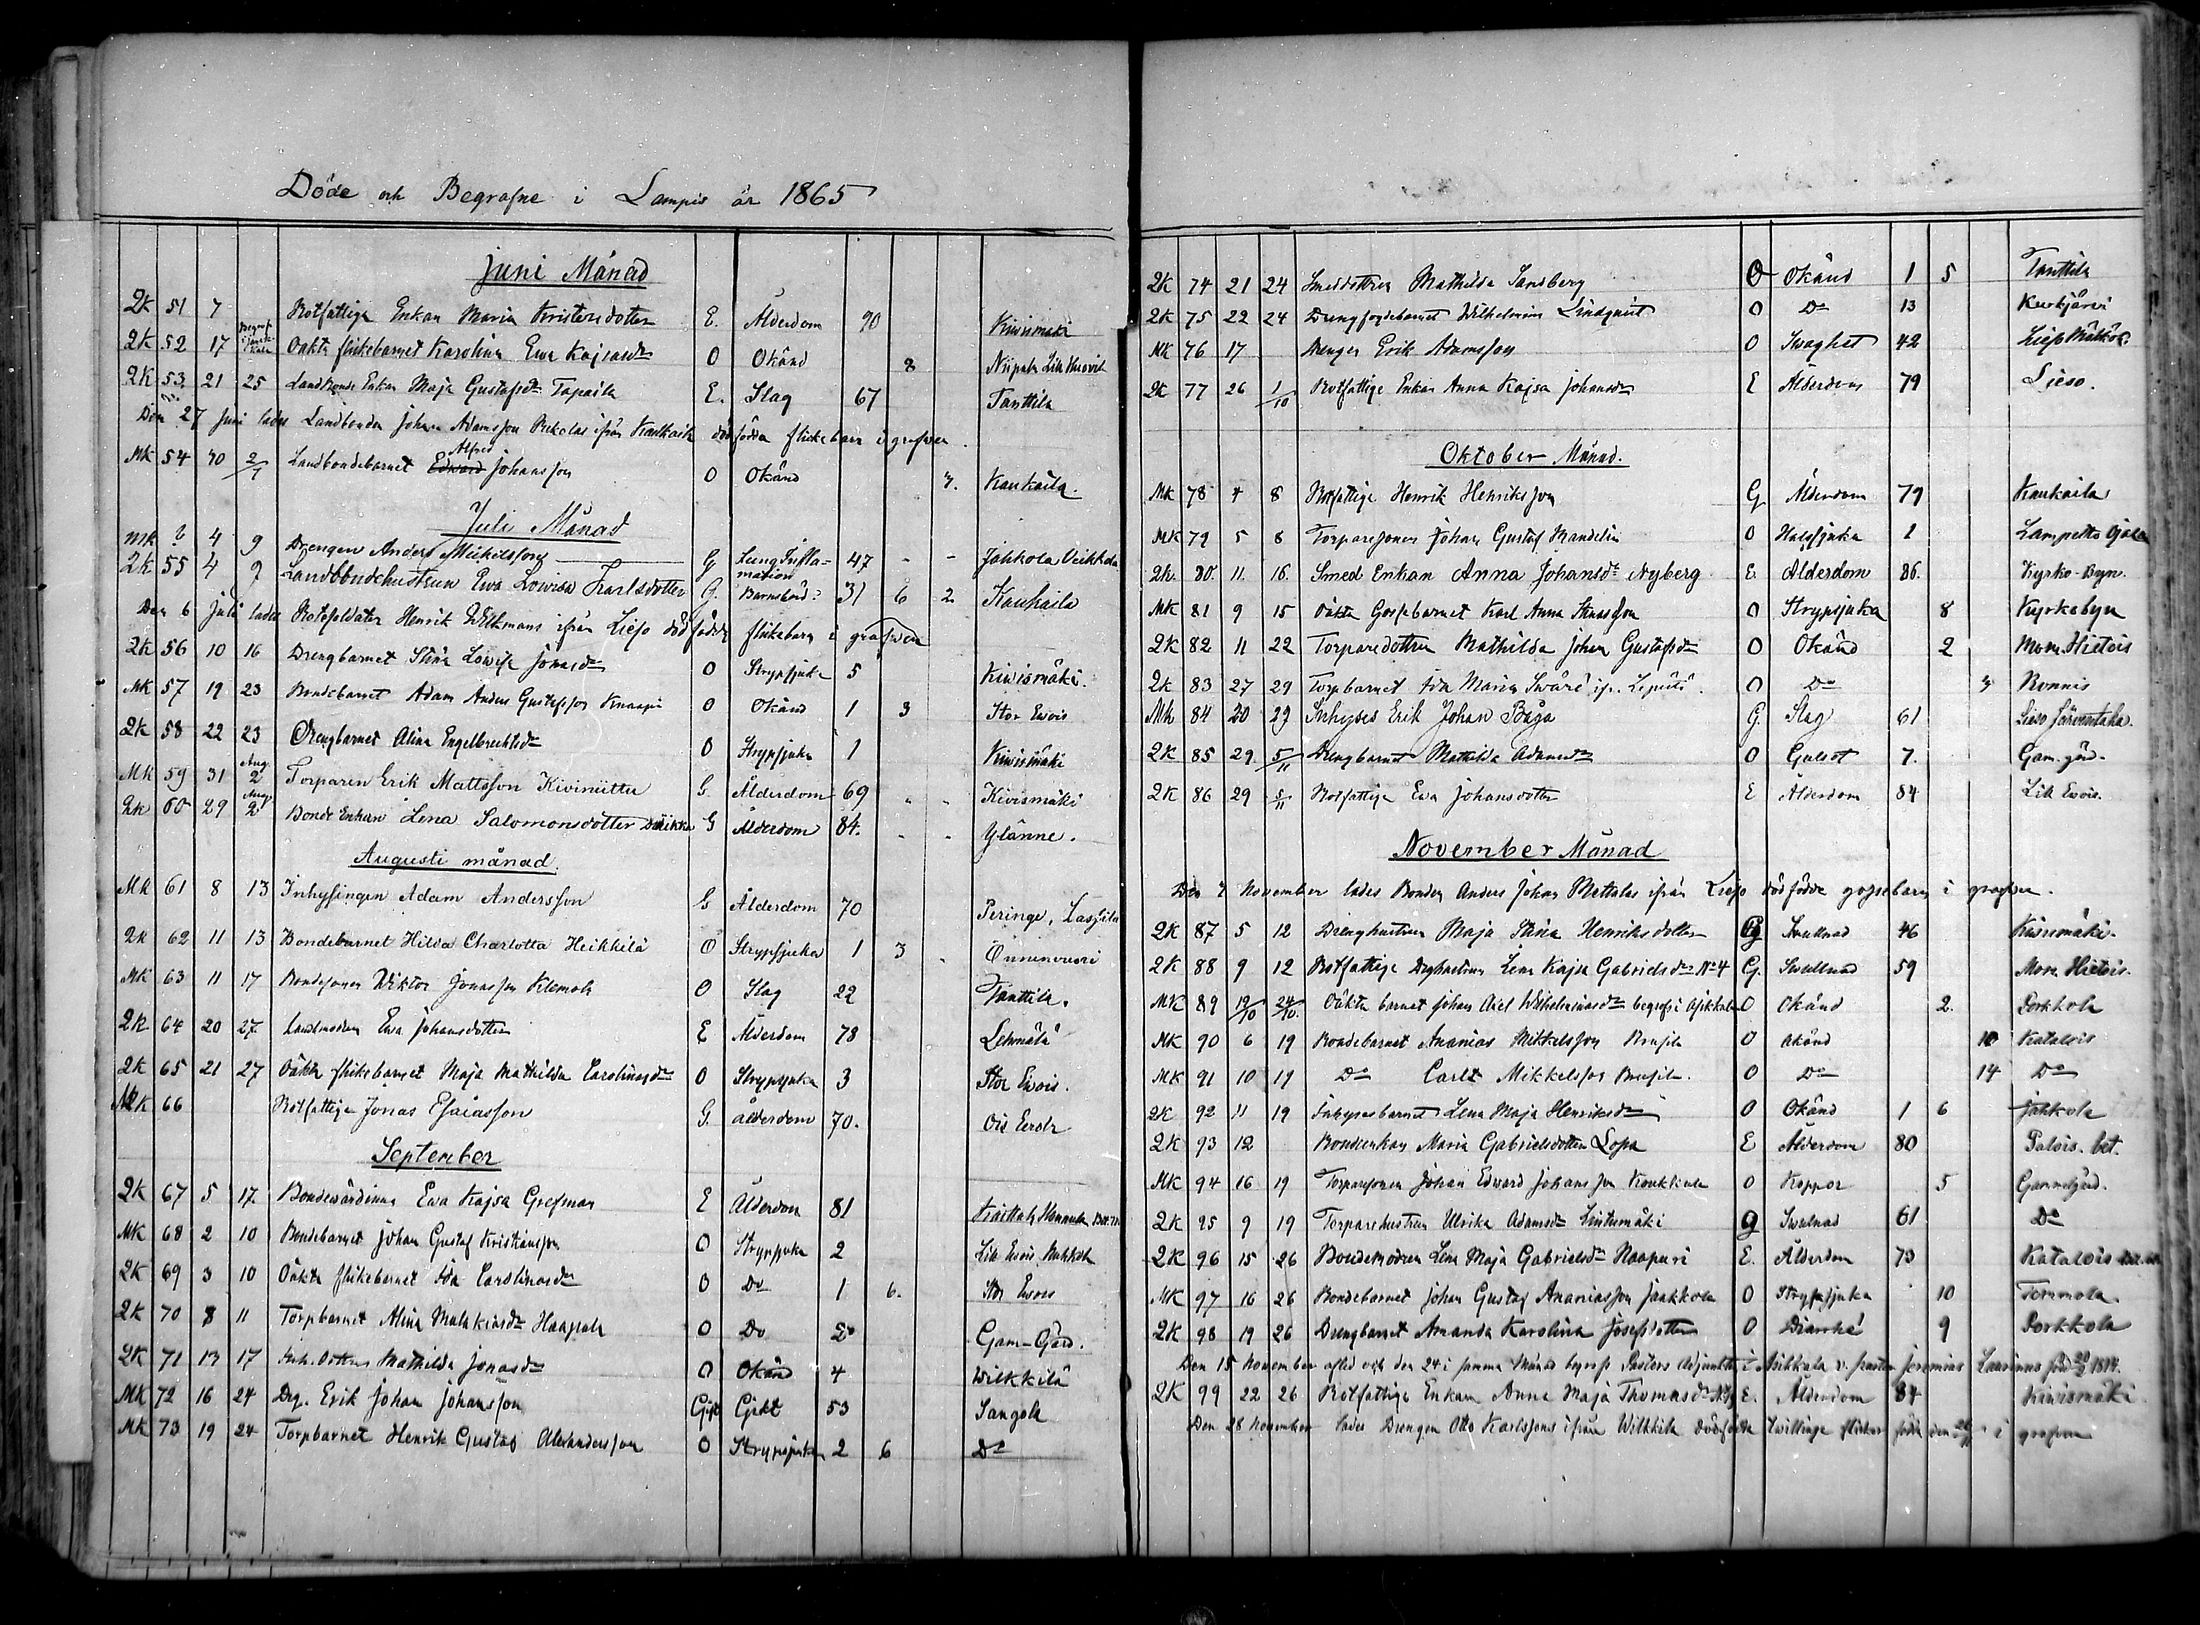 Döde och Begrafne i Lampis år 1865
Juni Månad
QK 51 7 Rotfattige Enkan Maria Kristersdotter E. Ålderdom 90 Kiwismäki
QK 52 17 Oäkta flickebarnet Karolina Ewa Kajsasdr O Okänd 8
QK 53 21 25 Landbonde Enkan Maja Gustafsdr Tapaila E. Slag 67 Tanttila
Den 27 Juni lades Landbonden Johan Adamsson Pekolas ifrån Kaukaila dödfödda flickebarn i grafwen
MK 54 30 2/7 Landbondebarnet Alfred Johansson O Okänd 7. Kaukaila.
Juli Månad
MK ? 4 9 Drengen Anders Mickelsson G Lung Infla-mation 47 - - Jahkola Veikkola
QK 55 4 9 Landbondehustrun Ewa Lowisa Karlsdotter G. Barnsbörd 31 6 2 Kaukaila
Den 6 Juli lades Rotesoldaten Henrik Wilkmans ifrån Lieso dödfödda flickebarn i grafwen
QK 56 10 16 Drengbarnet Stina Lowisa Jonasdr O Strypsjuka 5 Kiwismäki.
MK 57 19 23 Bondebarnet Adam Anders Gustafsson Knaapi O Okänd 1 3 Stor Ewois
QK 58 22 23 Drengbarnet Alina Engelbrechtsdr O Strypsjuka 1 Kiwismäki
MK 59 31 Aug. 2 Torparen Erik Mattsson Kiviniittu G. Ålderdom 69 Kivismäki
QK 60 29 Aug. 2 Bonde Enkan Lena Salomonsdotter G Ålderdom 84. Ylänne.
Augusti månad.
MK 61 8 13 Inhysingen Adam Andersson G Ålderdom 70 Peringe, Lassila
QK 62 11 13 Bondebarnet Hilda Charlotta Heikkilä O Strypsjuka 1 3
MK 63 11 17 Bondesonen Wiktor Jonasson Klemola O Slag 22 Tanttila.
QK 64 20 27 Landmodren Ewa Johansdotter E Ålderdom 78
QK 65 21 27 Oäkta flickebarnet Maja Mathilda Carolinasdr O Strypsjuka 3 Stor Ewois.
MK 66 Rotfattige Jonas Esaiasson G. ålderdom 70.
September
QK 67 5 17. Bondewärdinna Ewa Kajsa Grefman E Ålderdom 81
MK 68 2 10 Bondebarnet Johan Gustaf Kristiansson O Strypsjuka 2
QK 69 3 10 Oäkta flickebarnet Ida Carolinasdr O Do 1 6. Stor Ewois
QK 70 8 11 Torpbarnet Alina Malakiasdr Haapala O Do 2 Gam-Gård.
QK 71 13 17 Inh. Dottren Mathilda Jonasdr O Okänd 4 Wilkkilä
MK 72 16 24 Drg. Erik Johan Johansson Gift Gikt 53 Sangola
MK 73 19 24 Torpbarnet Henrik Gustaf Alexandersson O Strypsjuka 2 6 Do
QK 74 21 24 Smeddottren Mathilda Sandberg O Okänd 1 5 Tanttila
QK 75 22 24 Drengfogdebarnet Wilhelmina Lindqvist O Do 13 Kurkjärwi
MK 76 17 Drengen Erik Adamsson O Swaghet 42
QK 77 26 1/10 Rotfattige Enkan Anna Kajsa Johansdr E Ålderdom 79 Lieso.
Oktober Månad.
MK 78 4 8 Rotfattige Henrik Henriksson G Ålderdom 79 Kaukaila
MK 79 5 8 Torparesonen Johan Gustaf Mandelin O Halssjuka 1
QK 80. 11. 16. Smed Enkan Anna Johansdr Nyberg. E. Ålderdom 86. Kyrko-Byn.
MK 81 9 15 Oäkta Gossebarnet Karl Anna Stinasson O Strypsjuka 8 Kyrkobyn
QK 82 11 22 Torparedottren Mathilda Johan Gustafsdr O Okänd 2 Mom. Hietois
QK 83 27 29 Torpbarnet Ida Maria Swärd O Do 3 Ronnis
MK 84 20 29 Inhyses Erik Johan Båga G. Slag 61 Lieso Järventaka.
QK 85 29 5/11 Drengbarnet Mathilda Adamsdr O Gulsot 7. Gam.gård.
QK 86 29 5/11 Rotfattige Ewa Johansdotter E Ålderdom 84 Lill Ewois.
November Månad
Den 7 November lades Bonden Anders Johan Mattalas ifrån Lieso dödfödda gossebarn i grafwen.
QK 87 5 12 Drenghustrun Maja Stina Henriksdotter G Swullnad 46 Kiwismäki.
QK 88 9 12 Rotfattige Drghustrun Lena Kajsa Gabrielsdr No 4 G. Swullnad 59 Mom. Hietois.
MK 89 19/10 24/10. Oäkta barnet Johan Axel Wilhelminasdr begrafs i Asikkala O Okänd 2. Porkkola
MK 90 6 19 Bondebarnet Ananias Mikkelsson O Okänd 10 Katalois
MK 91 10 19 Do Carl Mikkelsson O Do 14 Do
QK 92 11 19 Inhysesbarnet Lena Maja Henriksdr O Okänd 1 6 Jahkola
QK 93 12 Bondeenkan Maria Gabrielsdotter Lopa E Ålderdom 80 Palois. bet.
MK 94 16 19 Torparesonen Johan Edward Johansson O Koppor 5 Gammelgård.
QK 95 9 19 Torparehustrun Ulrika Adamsdr Lintumäki g Swulnad 61 Do
QK 96 15 26 Bondemodren Lena Maja Gabrielsdr Naapuri E. Ålderdom 73 Katalois
MK 97 16 26 Bondebarnet Johan Gustaf Ananiasson Jaakkola O Strypsjuka 10 Tommola
QK 98 19 26 Drengbarnet Amanda Karolina Josefsdotter O Diarrhé 9 Porkkola
Den 15 November afled och den 24 i samma Månad begrofs Pastors Adjunkten i Asikkala
QK 99 22 26 Rotfattige Enkan Anna Maja Thomasdr E. Ålderdom 84 Kiwismäki.
Den 28 November lades Drengen Otto Karlssons ifrån Wilkkilä dödfödda twillinge flickor födda den i grafwen